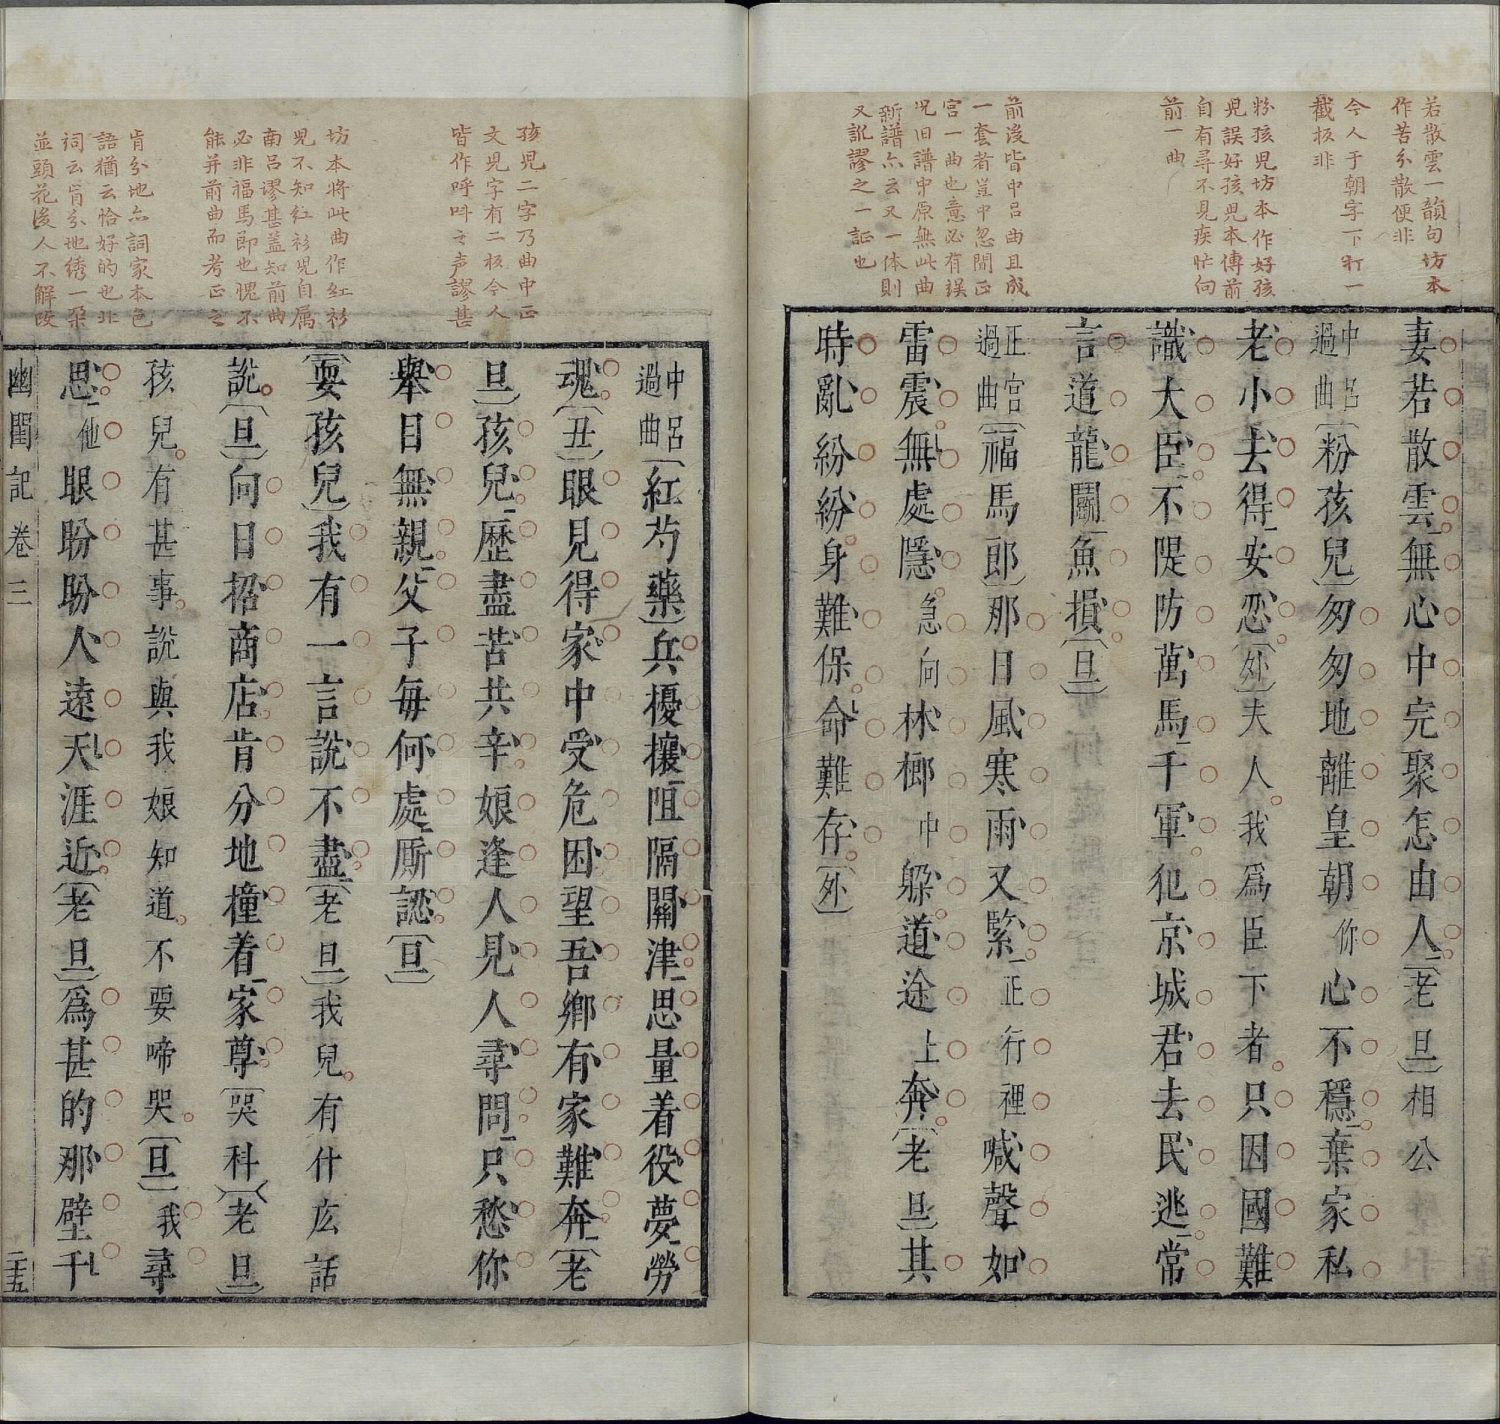 若散雲一韻句坊本
作苦分散便非
今人于朝字下打一
截板非
粉孩兒坊本作好孩
兒誤好孩兒本傳前
自有尋不見疾忙向
前一曲
前後皆中呂曲且成
一套者豈中忽間正
宮一曲也意必有誤
況旧譜中原無此曲
新譜亦云又一体則
又訛謬之一証也
妻若散雲無心中完聚怎由人（老旦）相公
中呂過曲（粉孩兒）匆匆地離皇朝你心不穩棄家私
老小去得安恋（外）夫人我爲臣下者只因國難
識大臣不隄防萬馬千軍犯京城君去民逃常
言道龍鬭魚損（旦）
正宮過曲（福馬郎）那日風寒雨又緊正行裡喊聲如
雷震無處隱急向林榔中躱道途上奔（老旦）其
時亂紛紛身難保命難存（外）
孩兒二字乃曲中正
文兒字有二板今人
皆作呼呌之声謬甚
坊本將此曲作紅衫
兒不知紅衫兒自屬
南呂謬甚蓋知前曲
必非福馬郎也愧不
能并前曲而考正之
肯分地亦詞家本色
語猶云恰好的也北
詞云肯分地綉一朶
並頭花後人不解改
中呂過曲（紅芍藥）兵擾攘阻隔關津思量着役夢勞
魂（丑）眼見得家中受危困望吾鄉有家難奔（老
旦）孩兒歷盡苦共辛娘逢人見人尋問只愁你
舉目無親父子每何處厮認（旦）
（耍孩兒）我有一言說不盡（老旦）我兒有什庅話
說（旦）向日招商店肯分地撞着家尊（哭科）（老旦）
孩兒有甚事說與我娘知道不要啼哭（旦）我尋
思他眼盼盼人遠天涯近（老旦）爲甚的那壁千
幽閨記　卷三　二十五